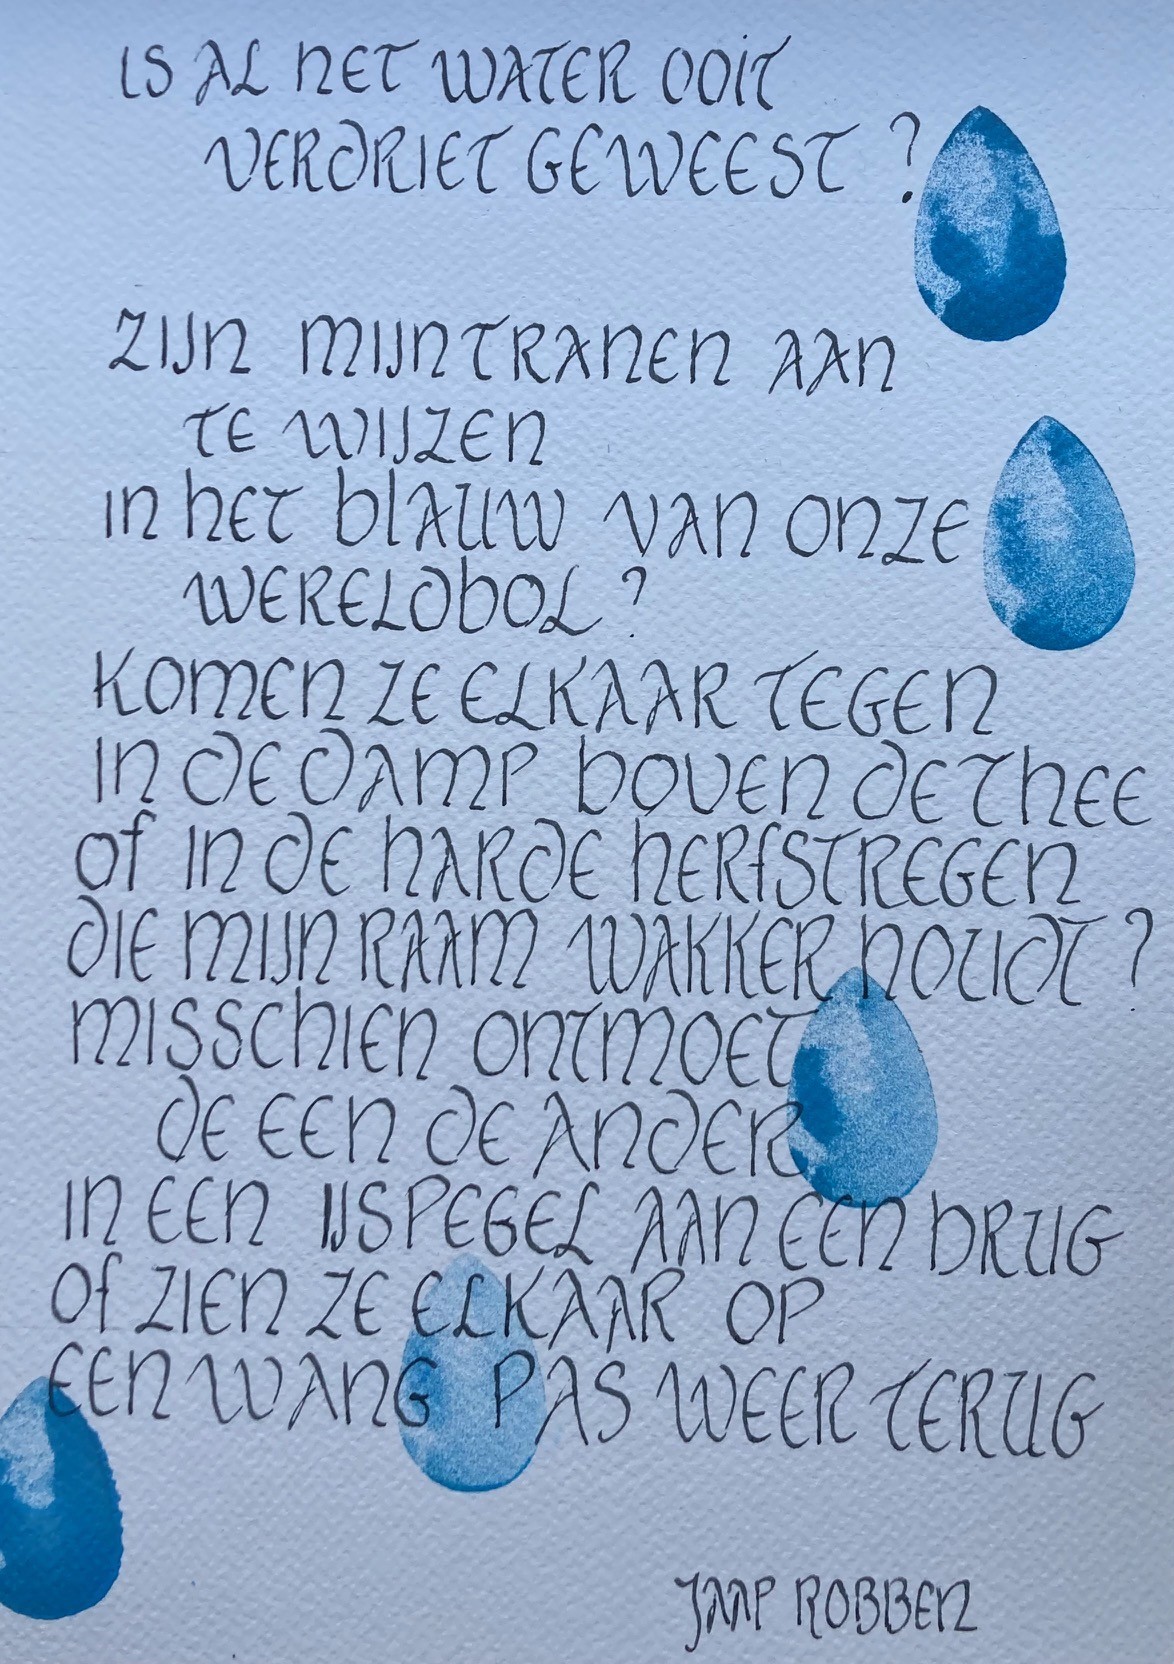 IS AL HET WATER OOIT
VERDRIET GEWEEST ?
ZIJN MIJN TRANEN AAN
TE WIJZEN
IN HET BLAUW VAN ONZE
WERELDBOL ?
KOMEN ZE ELKAAR TEGEN
IN DE DAMP BOVEN DE THEE
OF IN DE HARDE HERFSTREGEN
DIE MIJN RAAM WAKKER HOUDT ?
MISSCHIEN ONTMOET
DE EEN DE ANDER
IN EEN IJSPEGEL AAN EEN BRUG
OF ZIEN ZE ELKAAR OP
EEN WANG PAS WEER TERUG
JAAP ROBBEN